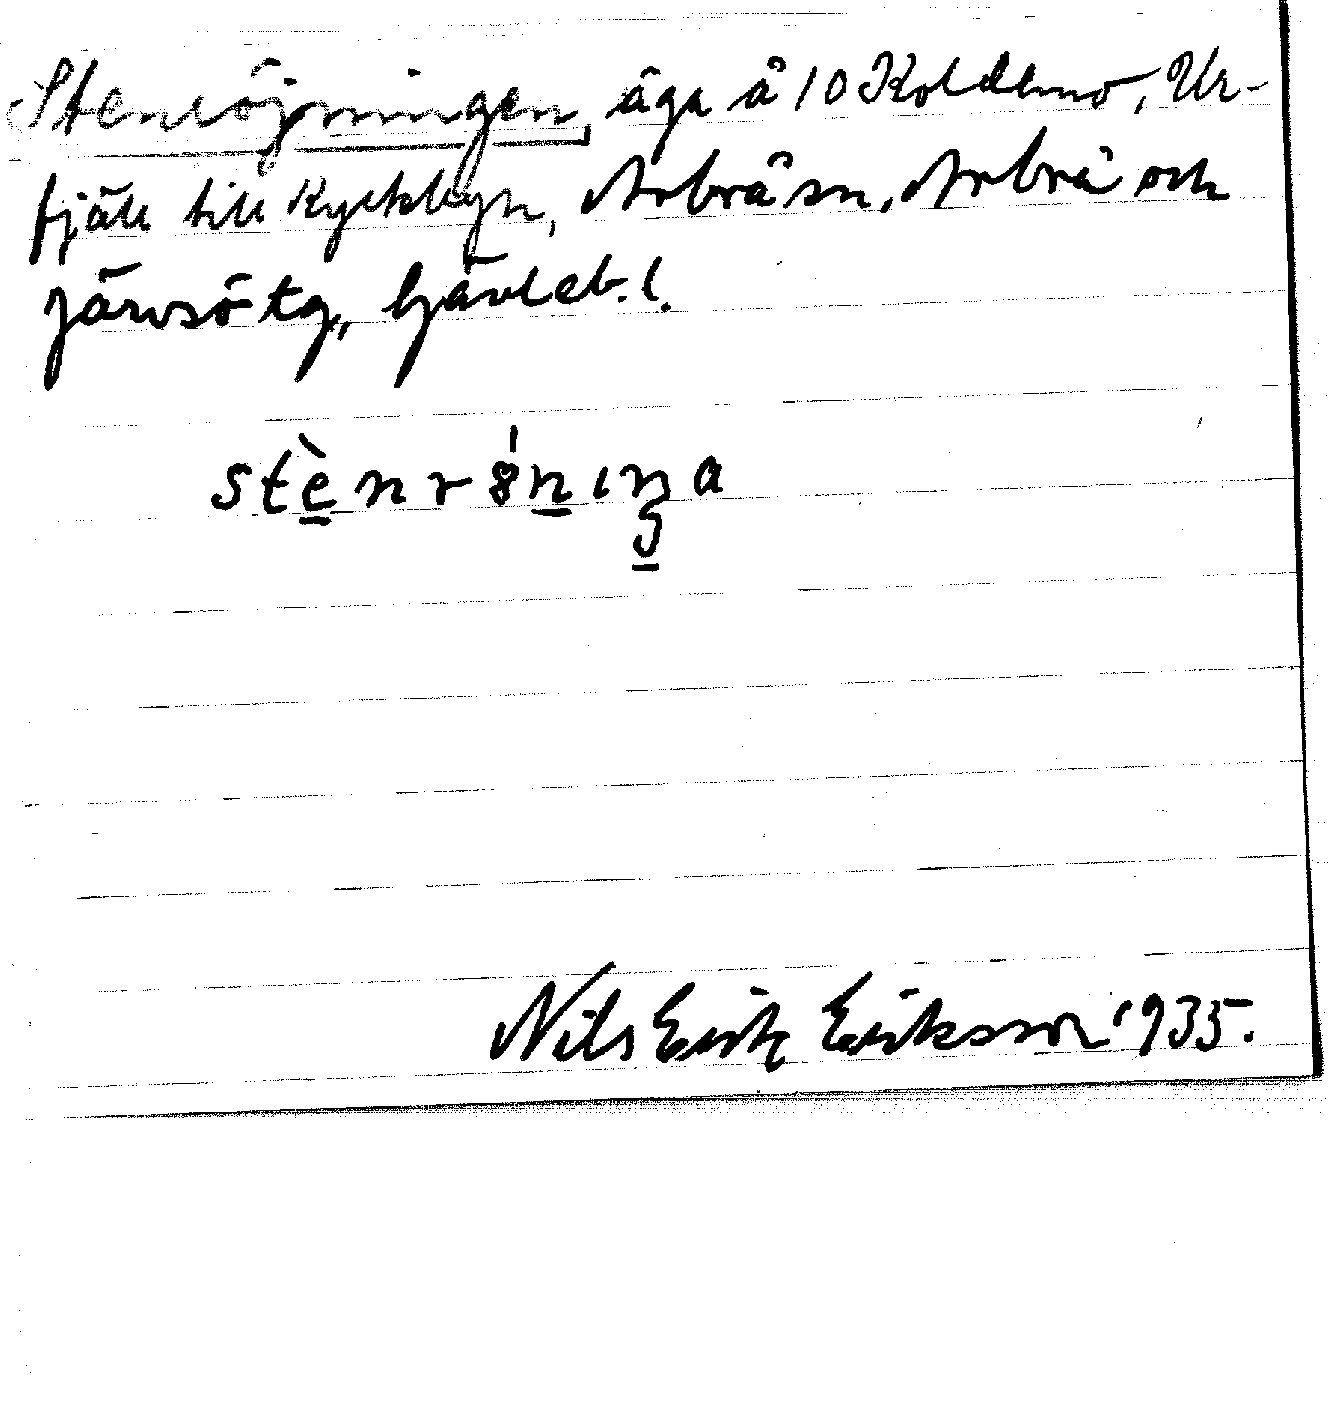 Stenröjningen, äga å 10 Koldemo, Ur-
fjäll till Kyrkbyn, Arbrå sn, Arbrå och
Järvsö tg, Gävleb. l.
stè̱nrö́ṉıŋa
Nils Erik Eriksson 1935.